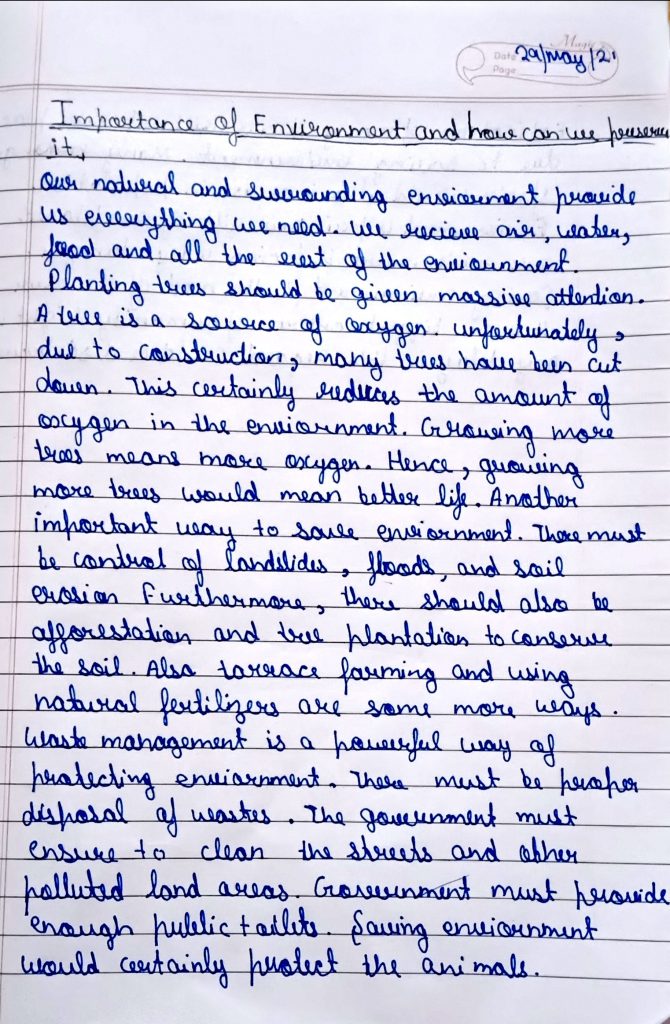 Magic
Date 29/May/21
Page
Importance of Environment and how can we preserve
it.
Our natural and surrounding enviornment provide
us everything we need. we recieve air, water,
food and all the rest of the enviounment.
Planting trees should be given massive attention.
A tree is a source of oxygen. unfortunately,
due to construction, many trees have been cut
down. This certainly reduces the amount of
oxygen in the enviornment. Growing more
trees means more oxygen. Hence, growing
more trees would mean better life. Another
important way to save enviornment. There must
be control of landslides, floods, and soil
erosion Furthermore, there should also be
afforestation and tree plantation to conserve
the soil. Also tarrace farming and using
natural fertilizers are some more ways.
Waste management is a powerful way of
protecting enviornment. There must be proper
disposal of wastes. The government must
ensure to clean the streets and other
polluted land areas. Government must provide
enough public toilets. Saving enviornment
would certainly protect the animals.